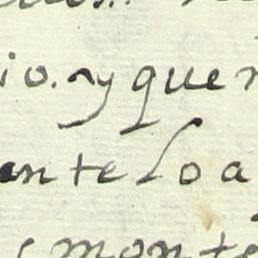 io. y que
ente lo a
monte